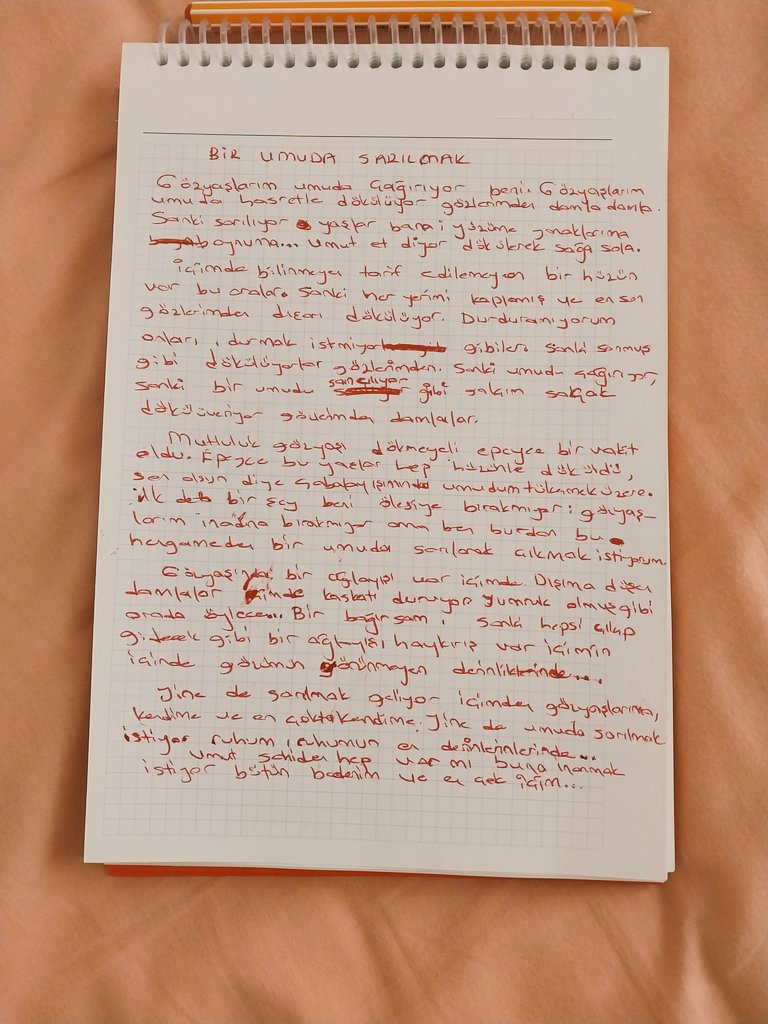 BİR UMUDA SARILMAK
Gözyaşlarım umuda çağırıyor beni. Gözyaşlarım
umuda hasretle dökülüyor gözlerimden damla damla.
Sanki sarılıyor yaşlar bana; yüzüme yanaklarıma
boynuma... Umut et diyor dökülerek sağa sola.
İçimde bilinmeyen tarif edilemeyen bir hüzün
var bu aralar. Sanki her yerimi kaplamış ve en son
gözlerimden dışarı dökülüyor. Durduramıyorum
onları, durmak istmiyor gibiler. Sanki sonmuş
gibi dökülüyorlar gözlerimden. Sanki umudu çağırıyor,
sanki bir umudu sancılıyor gibi yalçın salçak
dökülüveriyor gövdemden damlalar.
Mutluluk gözyaşı dökmeyeli epeyce bir vakit
oldu. Epeyce bu yaşlar hep hüzünle döküldü,
son olsun diye çabalayışımında umudum tükenmek üzere.
İlk defa bir şey beni ölesiye bırakmıyor; gözyaş-
larım inadına bırakmıyor ama ben burdan bu
hengameden bir umuda sarılarak çıkmak istiyorum
Gözyaşında bir ağlayışı var içimde. Dışıma düşen
damlalar içimde kaskatı duruyor. Yumruk olmuş gibi
orada öylece... Bir bağırsam, sanki hepsi çıkıp
gidecek gibi bir ağlayış, haykırış var içimin
içinde gözümün görünmeyen derinliklerinde...
Yine de sarılmak geliyor içimden gözyaşlarıma,
kendime ve en çokta kendime. Yine de umuda sarılmak
istiyor ruhum, ruhumun en derinlerinlerinde...
Umut sahiden hep var mı buna inanmak
istiyor bütün bedenim ve en çok içim...